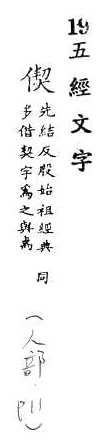 19 五經文字
偰
先結反殷始祖經典
多借契字為之與禼
同
(人部.